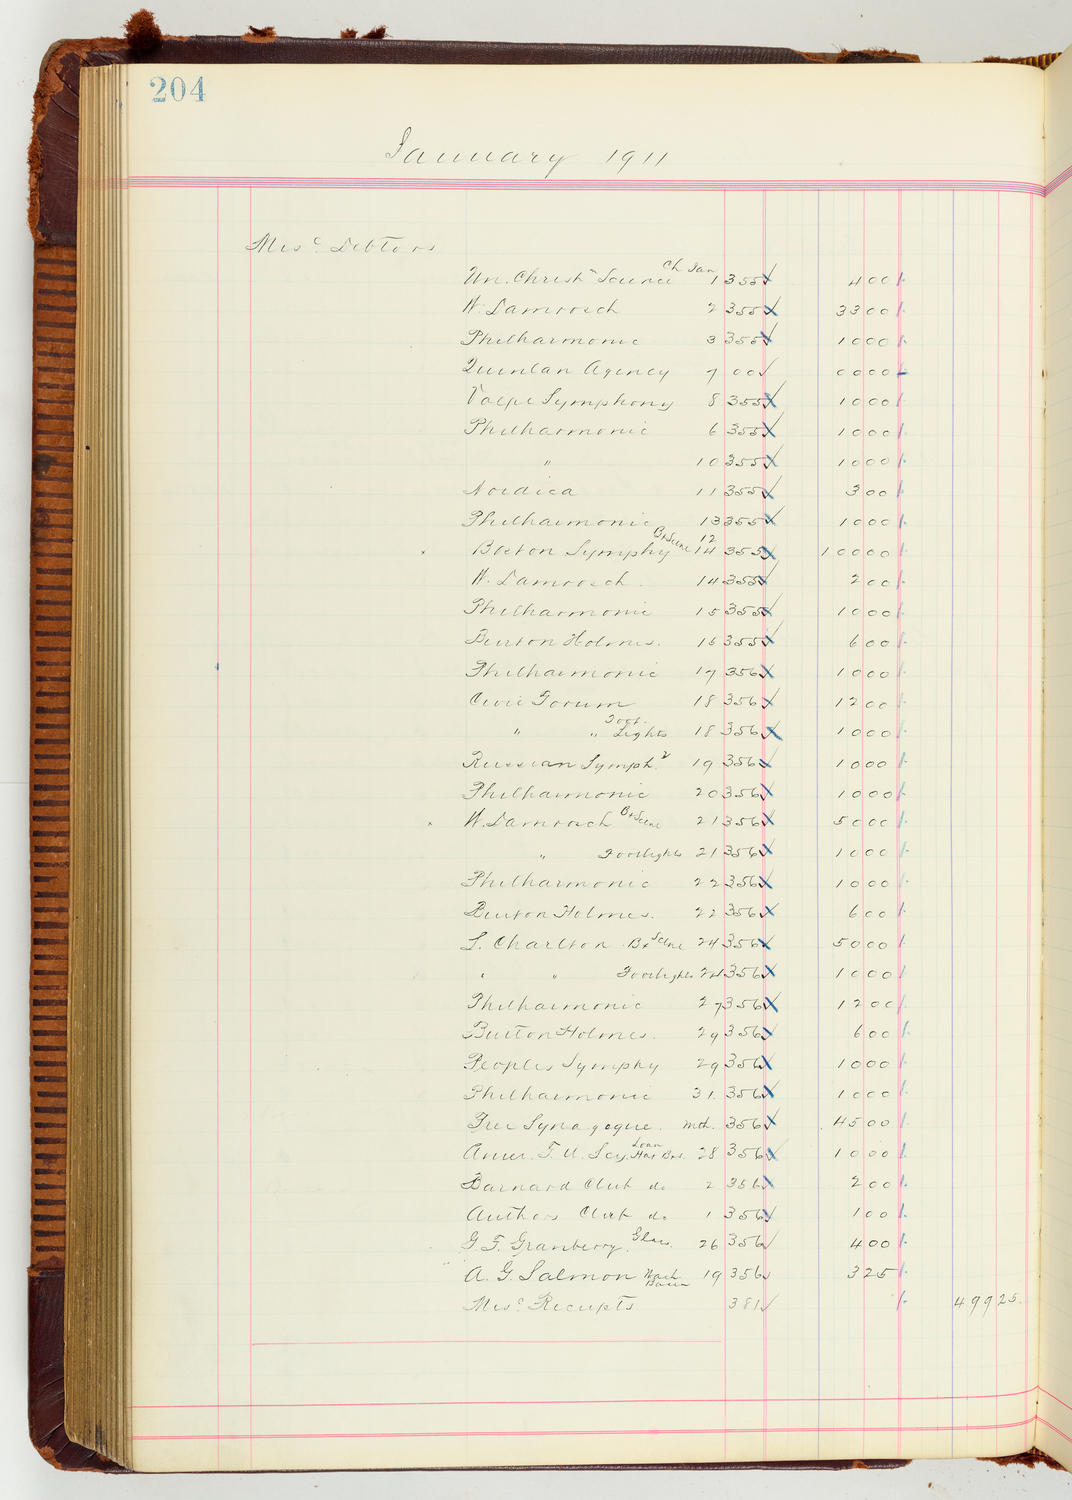 204
January 1911
Misc. Debtors
Un. Christn Science Ch Jan 1 355 ✓ 400
W. Damrosch 2 355 ✓ 3300
Philharmonic 3 355 ✓ 1000
Quinlan Agency 7 00 ✓ 0000
Volpe Symphony 8 355 ✓ 1000
Philharmonic 6 355 ✓ 1000
" 10 355 ✓ 1000
Nordica 11 355 ✓ 300
Philharmonic 13 355 ✓ 1000
x Boston Symphy Bx Scene 12 14 355 ✓ 10000
W. Damrosch. 14 355 ✓ 200
Philharmonic 15 355 ✓ 1000
Burton Holmes. 15 355 ✓ 600
Philharmonic 17 356 ✓ 1000
Civic Forum 18 356 ✓ 1200
" " Foot. Lights 18 356 ✓ 1000
Russian Symph. 19 356 ✓ 1000
Philharmonic 20 356 ✓ 1000
x W. Damrosch Bx Scene 21 356 ✓ 5000
" Footlights 21 356 ✓ 1000
Philharmonic 22 356 ✓ 1000
Burton Holmes. 22 356 ✓ 600
L. Charlton Bx Scene 24 356 ✓ 5000
" " Footlights 24 356 ✓ 1000
Philharmonic 27 356 ✓ 1200
Burton Holmes. 29 356 ✓ 600
Peoples Symphy 29 356 ✓ 1000
Philharmonic 31. 356 ✓ 1000
Free Synagogue. mth. 356 ✓ 4500
Amer. F. U. Scy. Loan 28 356 ✓ 1000
Barnard Club do 2 356 ✓ 200
Authors Club do 1 356 ✓ 100
G. F. Granberry. Glass 26 356 ✓ 400
A. G. Salmon Wash Basin 19 356 ✓ 325
Misc. Receipts 381 ✓ 49925